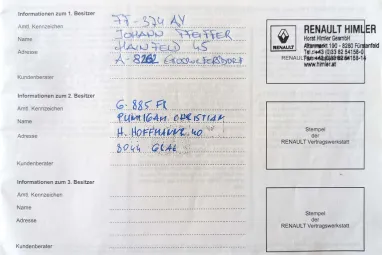 Informationen zum 1. Besitzer
Amtl. Kennzeichen FF-374 AY
Name JOHANN PFEIFFER
Adresse HAINFELD 45
A-8262
Kundenberater
RENAULT
RENAULT HIMLER
Horst Himler GesmbH
Altenmarkt 190 - 8280 Fürstenfeld
www.himler.at
Informationen zum 2. Besitzer
Amtl. Kennzeichen G-885
Name CHRISTIAN
Adresse H. HOFFMANNG. 40
8044 GRAZ
Kundenberater
Stempel
der
RENAULT Vertragswerkstatt
Informationen zum 3. Besitzer
Amtl. Kennzeichen
Name
Adresse
Kundenberater
Stempel
der
RENAULT Vertragswerkstatt